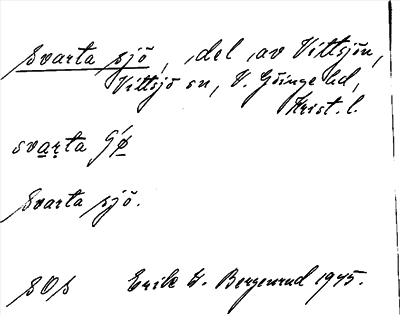 Svarta sjö, del av Vittsjön,
Vittsjö sn, V. Göinge hd,
Krist. l.
svarta
Svarta sjö.
SOS Erik G. Bergenrud 1945.